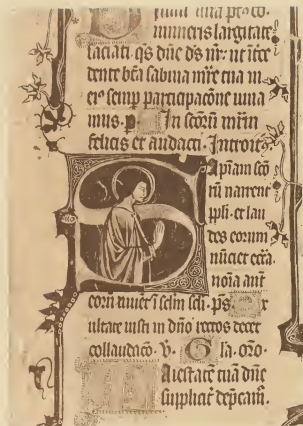 muneris largitate
laciati. qs dñe ds ñr: ut ītce
dente bt̄a sabina m̄re tua in
ei⁹ semp participacōne uiua
mus. p. In scōrū mr̄m
felicis et audacti. Introit⁹
Sapiam scō
rū narrent
ppli. et lau
des eorum
nūciet ecc̄a.
noīa aut̄
eorū uiuēt ī sclm scli. ps. Ex
ultate iusti in dño rectos decet
collaudacō. V. Gla. Oro.
Maiestatē tuā dñe
supplicit̄ dep̄cam̄.